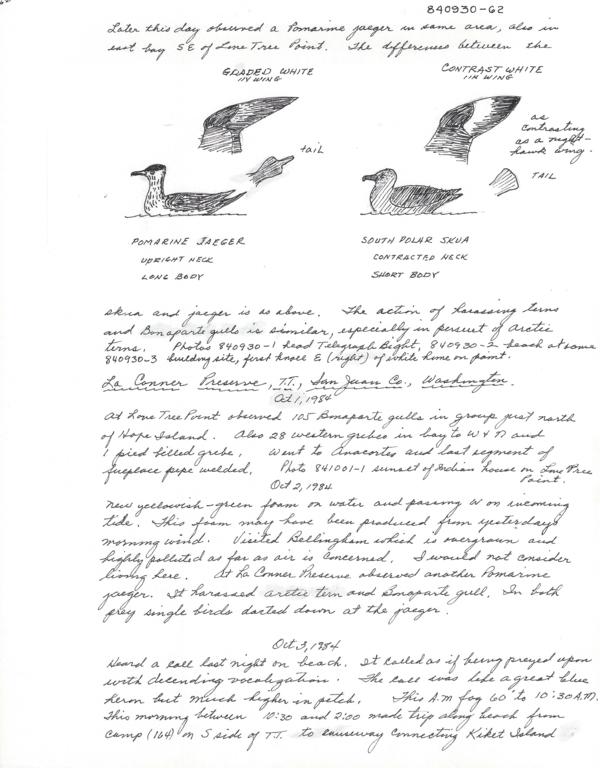 840930-62
Later this day observed a Pomarine jaeger in same area, also in
east bay SE of Lone Tree Point. The differences between the
GRADED WHITE
IN WING
CONTRAST WHITE
IN WING
as
contrasting
as a night-
hawk wing.
tail
TAIL
POMARINE JAEGER
UPRIGHT NECK
LONG BODY
SOUTH POLAR SKUA
CONTRACTED NECK
SHORT BODY
skua and jaeger is as above. The action of harassing terns
and Bonaparte gulls is similar, especially in persuet of arctic
terns. Photos 840930-1 head Telegraph Bight, 840930-2 beach at same
840930-3 building site, first knoll E (right) of white home on point.
La Conner Preserve, T.T., San Juan Co., Washington.
Oct 1, 1984
At Lone Tree Point observed 105 Bonaparte gulls in group just north
of Hope Island. Also 28 western grebes in bay to W & N and
1 pied billed grebe. Went to Anacortes and last segment of
fireplace pipe welded. Photo 841001-1 sunset of Indian house on Lone Tree
Point.
Oct 2, 1984
New yellowish-green foam on water and passing W on incoming
tide. This foam may have been produced from yesterdays
morning wind. Visited Bellingham which is overgrown and
highly polluted as far as air is concerned. I would not consider
living here. At La Conner Preserve observed another Pomarine
jaeger. It harassed arctic tern and Bonaparte gull. In both
prey single birds darted down at the jaeger.
Oct 3, 1984
Heard a call last night on beach. It called as if being preyed upon
with decending vocalization. The call was like a great blue
heron but much higher in pitch. This A.M fog 60° to 10:30 A.M.
This morning between 10:30 and 2:00 made trip along beach from
camp (164) on S side of T.T. to causeway connecting Kiket Island